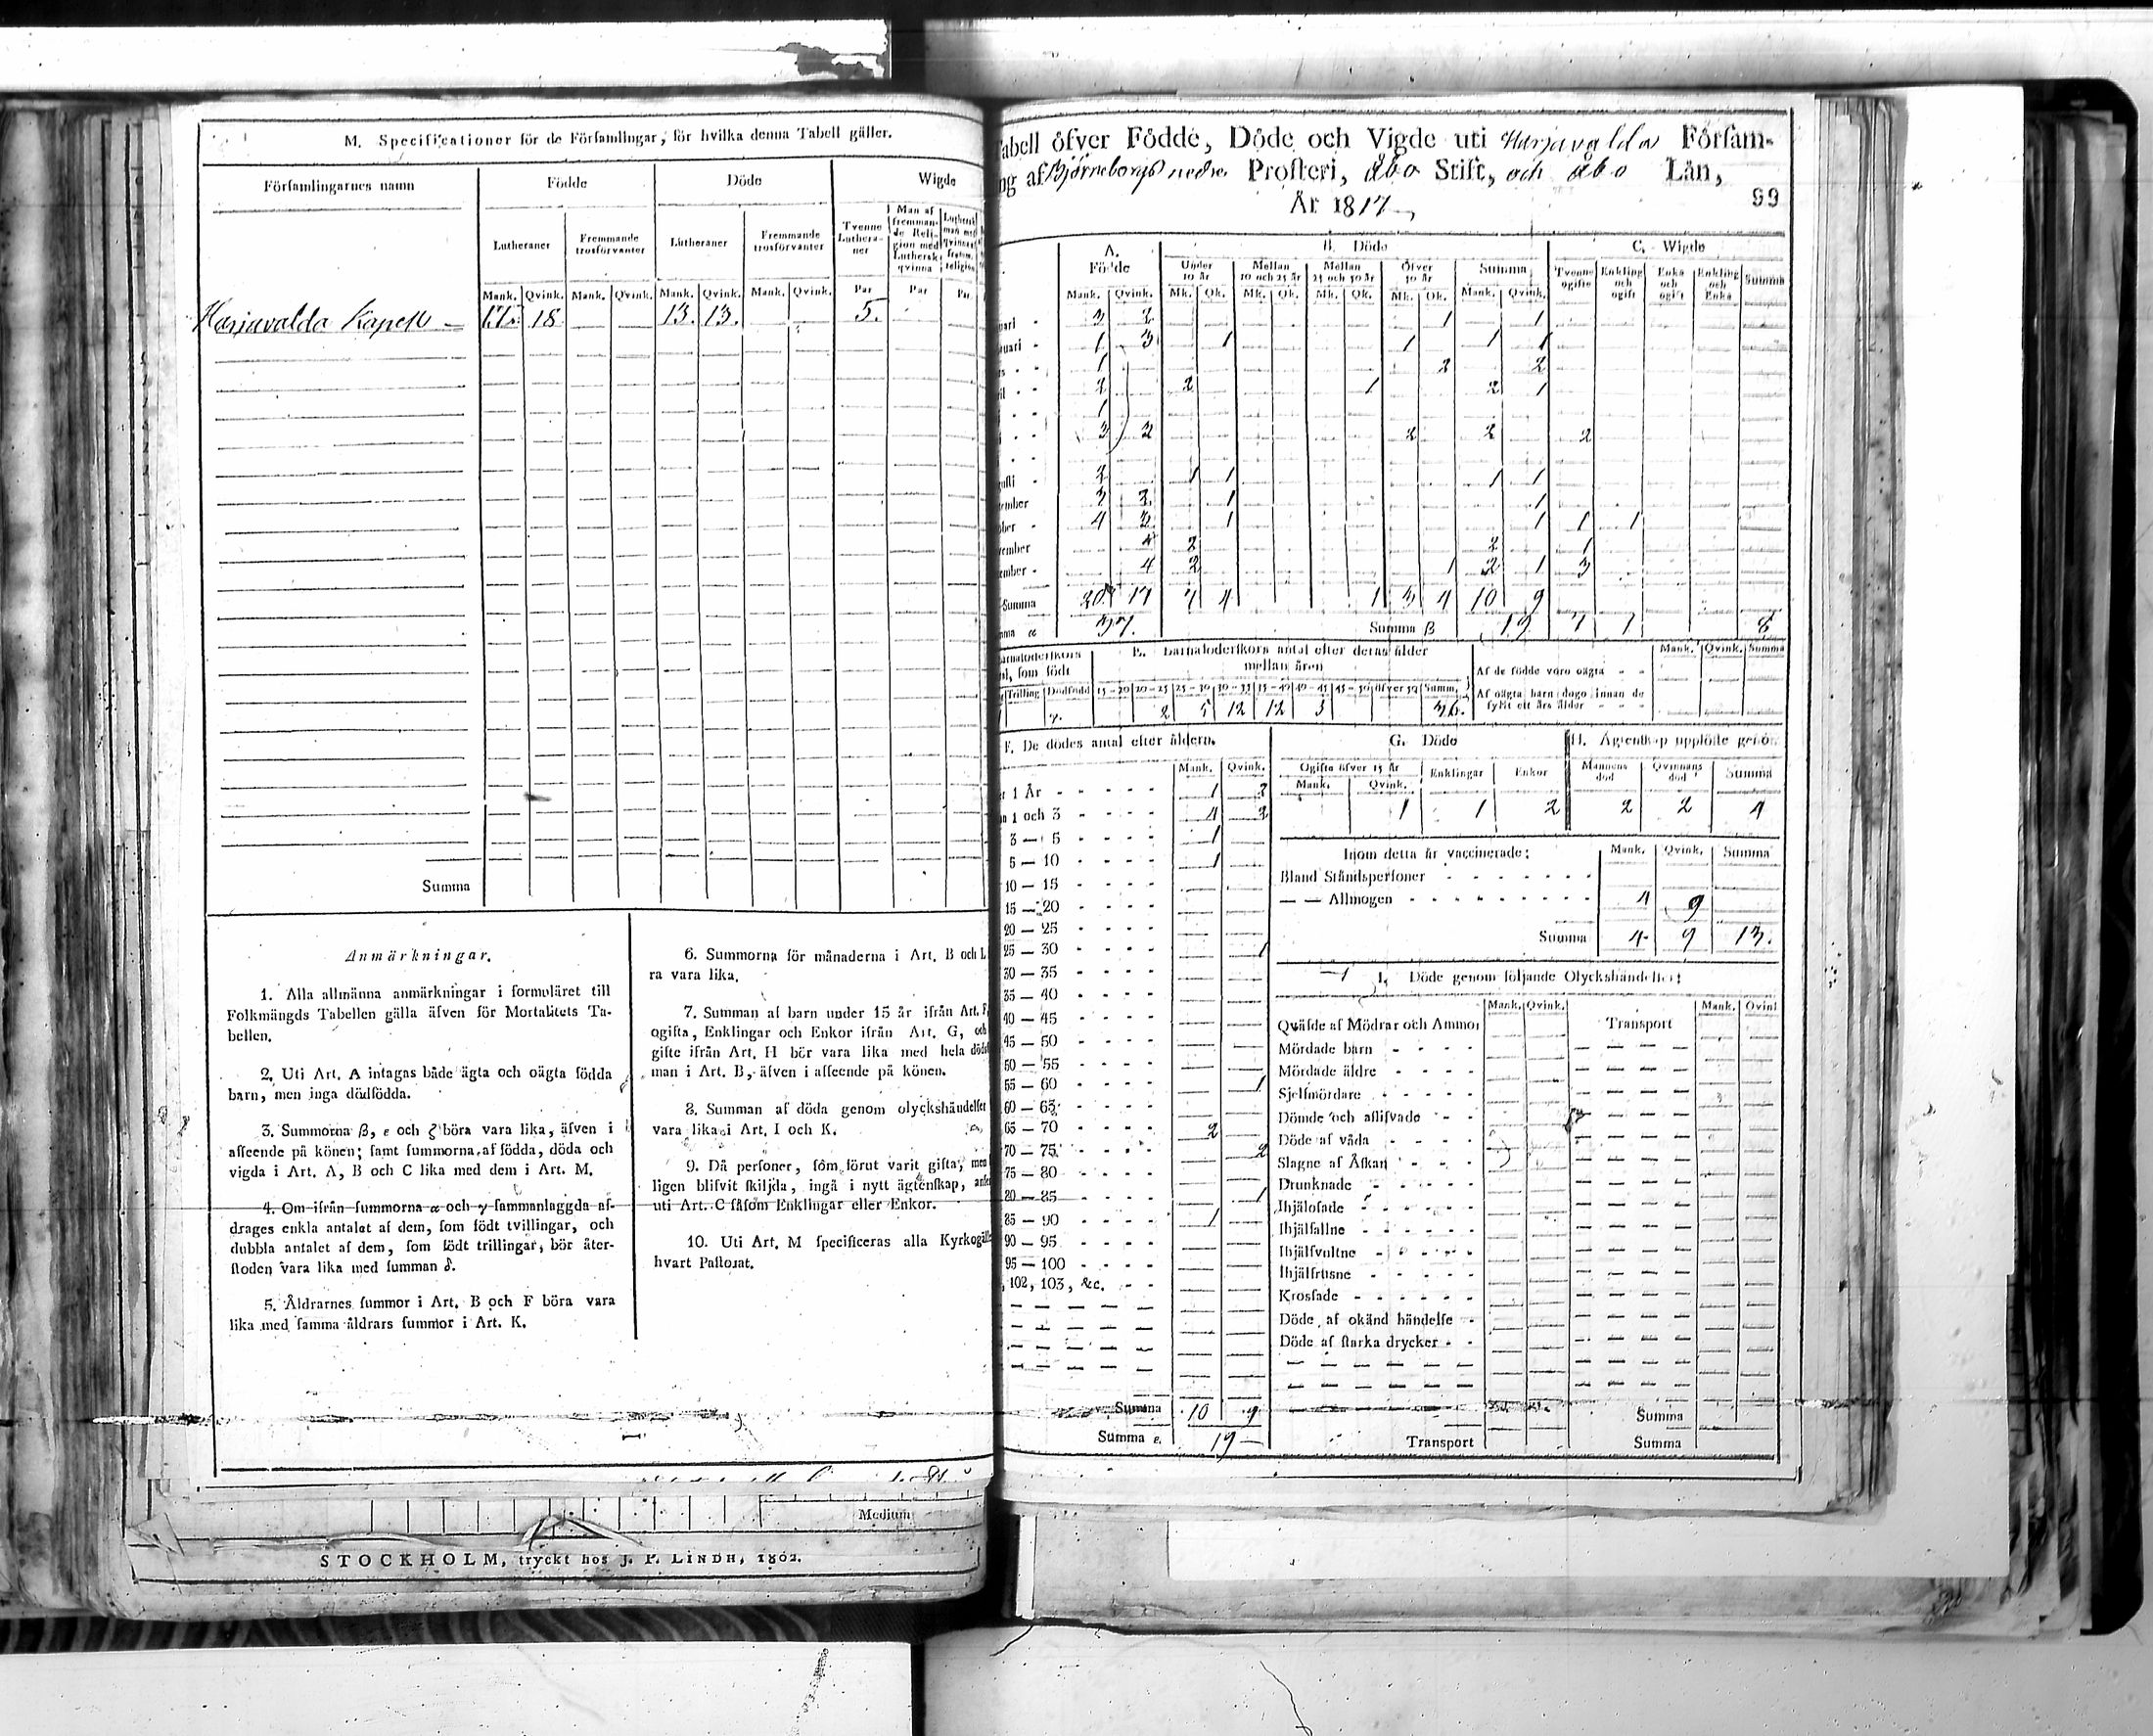 M. Specificationer för de Församlingar, för hvilka denna Tabell gäller.
Församlingarnes namn Födde Döde Wigde
Lutheraner Fremmande trosförvanter Lutheraner Fremmande trosförvanter Tvenne Lutheraner Man af fremmande Religion med Luthersk qvinna
Mank. Qvink. Mank. Qvink. Mank. Qvink. Mank. Qvink. Par Par Par
Harjavalda Kapell 17. 18. 13. 13. 5.
Summa
Anmärkningar.
1. Alla allmänna anmärkningar i formuläret till
Folkmängds Tabellen gälla äfven för Mortalitets Ta-
bellen.
2. Uti Art. A intagas både ägta och oägta födda
barn, men inga dödfödda.
3. Summorna β, ε och ζ böra vara lika, äfven i
afseende på könen; samt summorna af födda, döda och
vigda i Art. A, B och C lika med dem i Art. M.
4. Om ifrån summorna α och γ sammanlaggda af-
drages enkla antalet af dem, som födt tvillingar, och
dubbla antalet af dem, som födt trillingar, bör åter-
stoden vara lika med summan δ.
5. Åldrarnes summor i Art. B och F böra vara
lika med samma åldrars summor i Art. K.
6. Summorna för månaderna i Art. B och L
ra vara lika.
7. Summan af barn under 15 år ifrån Art. F,
ogifta, Enklingar och Enkor ifrån Art. G, och
gifte ifrån Art. H bör vara lika med hela döds
man i Art. B, äfven i afseende på könen.
8. Summan af döda genom olyckshändelser
vara lika i Art. I och K.
9. Då personer, som förut varit gifta, men
ligen blifvit skiljda, ingå i nytt ägtenskap, anses
uti Art. C såsom Enklingar eller Enkor.
10. Uti Art. M specificeras alla Kyrkogäll
hvart Pastorat.
Medium
STOCKHOLM, tryckt hos J. P. LINDH, 1802.
abell öfver Födde, Döde och Vigde uti Harjavalda Försam-
ng af Björneborgs nedre Prosteri, Åbo Stift, och Åbo Län,
År 1817
99
A. Födde B. Döde C. Wigde
Under 10 år Mellan 10 och 25 år Mellan 25 och 50 år Öfver 50 år Summa Tvenne ogifte Enkling och ogift Enka och ogift Enkling och Enka Summa
Mank. Qvink. Mk. Qk. Mk. Qk. Mk. Qk. Mk. Qk. Mank. Qvink.
uari 3 2 1 1
uari 1 3 1 1 1 1
1 2 2
2 2 1 2 1
1
3 2 2 2 2
usti 2 1 1 1 1
tember 3 2 1 1
ober 4 3 1 1 1 1
vember 4 2 2 1
ember 4 2 1 2 1 3
Summa 20 17 7 4 1 3 4 10 9
mma α 37. Summa β 19 7 1 8
E. Barnaföderskors antal efter deras ålder
mellan åren
Trilling Dödfödd 15-20 20-25 25-30 30-35 35-40 40-45 45-50 öfver 50 Summ.
2 12 12 3 36.
Mank. Qvink. Summa
Af de födde voro oägta
Af oägta barn dogo innan de
fyllt ett års ålder
F. De dödes antal efter åldern.
Mank. Qvink.
1 År 1 2
1 och 3 4 2
3 — 5 1
5 — 10 1
10 — 15
15 — 20
20 — 25
25 — 30 1
30 — 35
35 — 40
40 — 45
45 — 50
50 — 55
55 — 60 1
60 — 65
65 — 70 2
70 — 75 2
75 — 80
80 — 85 1
85 — 90 1
90 — 95
95 — 100
102, 103, &c.
Summa 10 9
Summa ε. 19
G. Döde
Ogifta öfver 15 år Enklingar Enkor
Mank. Qvink.
1 1 2
H. Ägtenskap upplöste genom
Mannens död Qvinnans död Summa
2 2 4
Inom detta år vaccinerade: Mank. Qvink. Summa
Bland Ståndspersoner
— — Allmogen 4 9
Summa 4 9 13.
I. Döde genom följande Olyckshändelser:
Mank. Qvink. Mank. Qvink
Qväfde af Mödrar och Ammor Transport
Mördade barn
Mördade äldre
Sjelfmördare
Dömde och aflifvade
Döde af våda
Slagne af Åskan
Drunknade
Ihjälosade
Ihjälfallne
Ihjälsvultne
Ihjälfrusne
Krossade
Döde af okänd händelse
Döde af starka drycker
Summa
Transport Summa